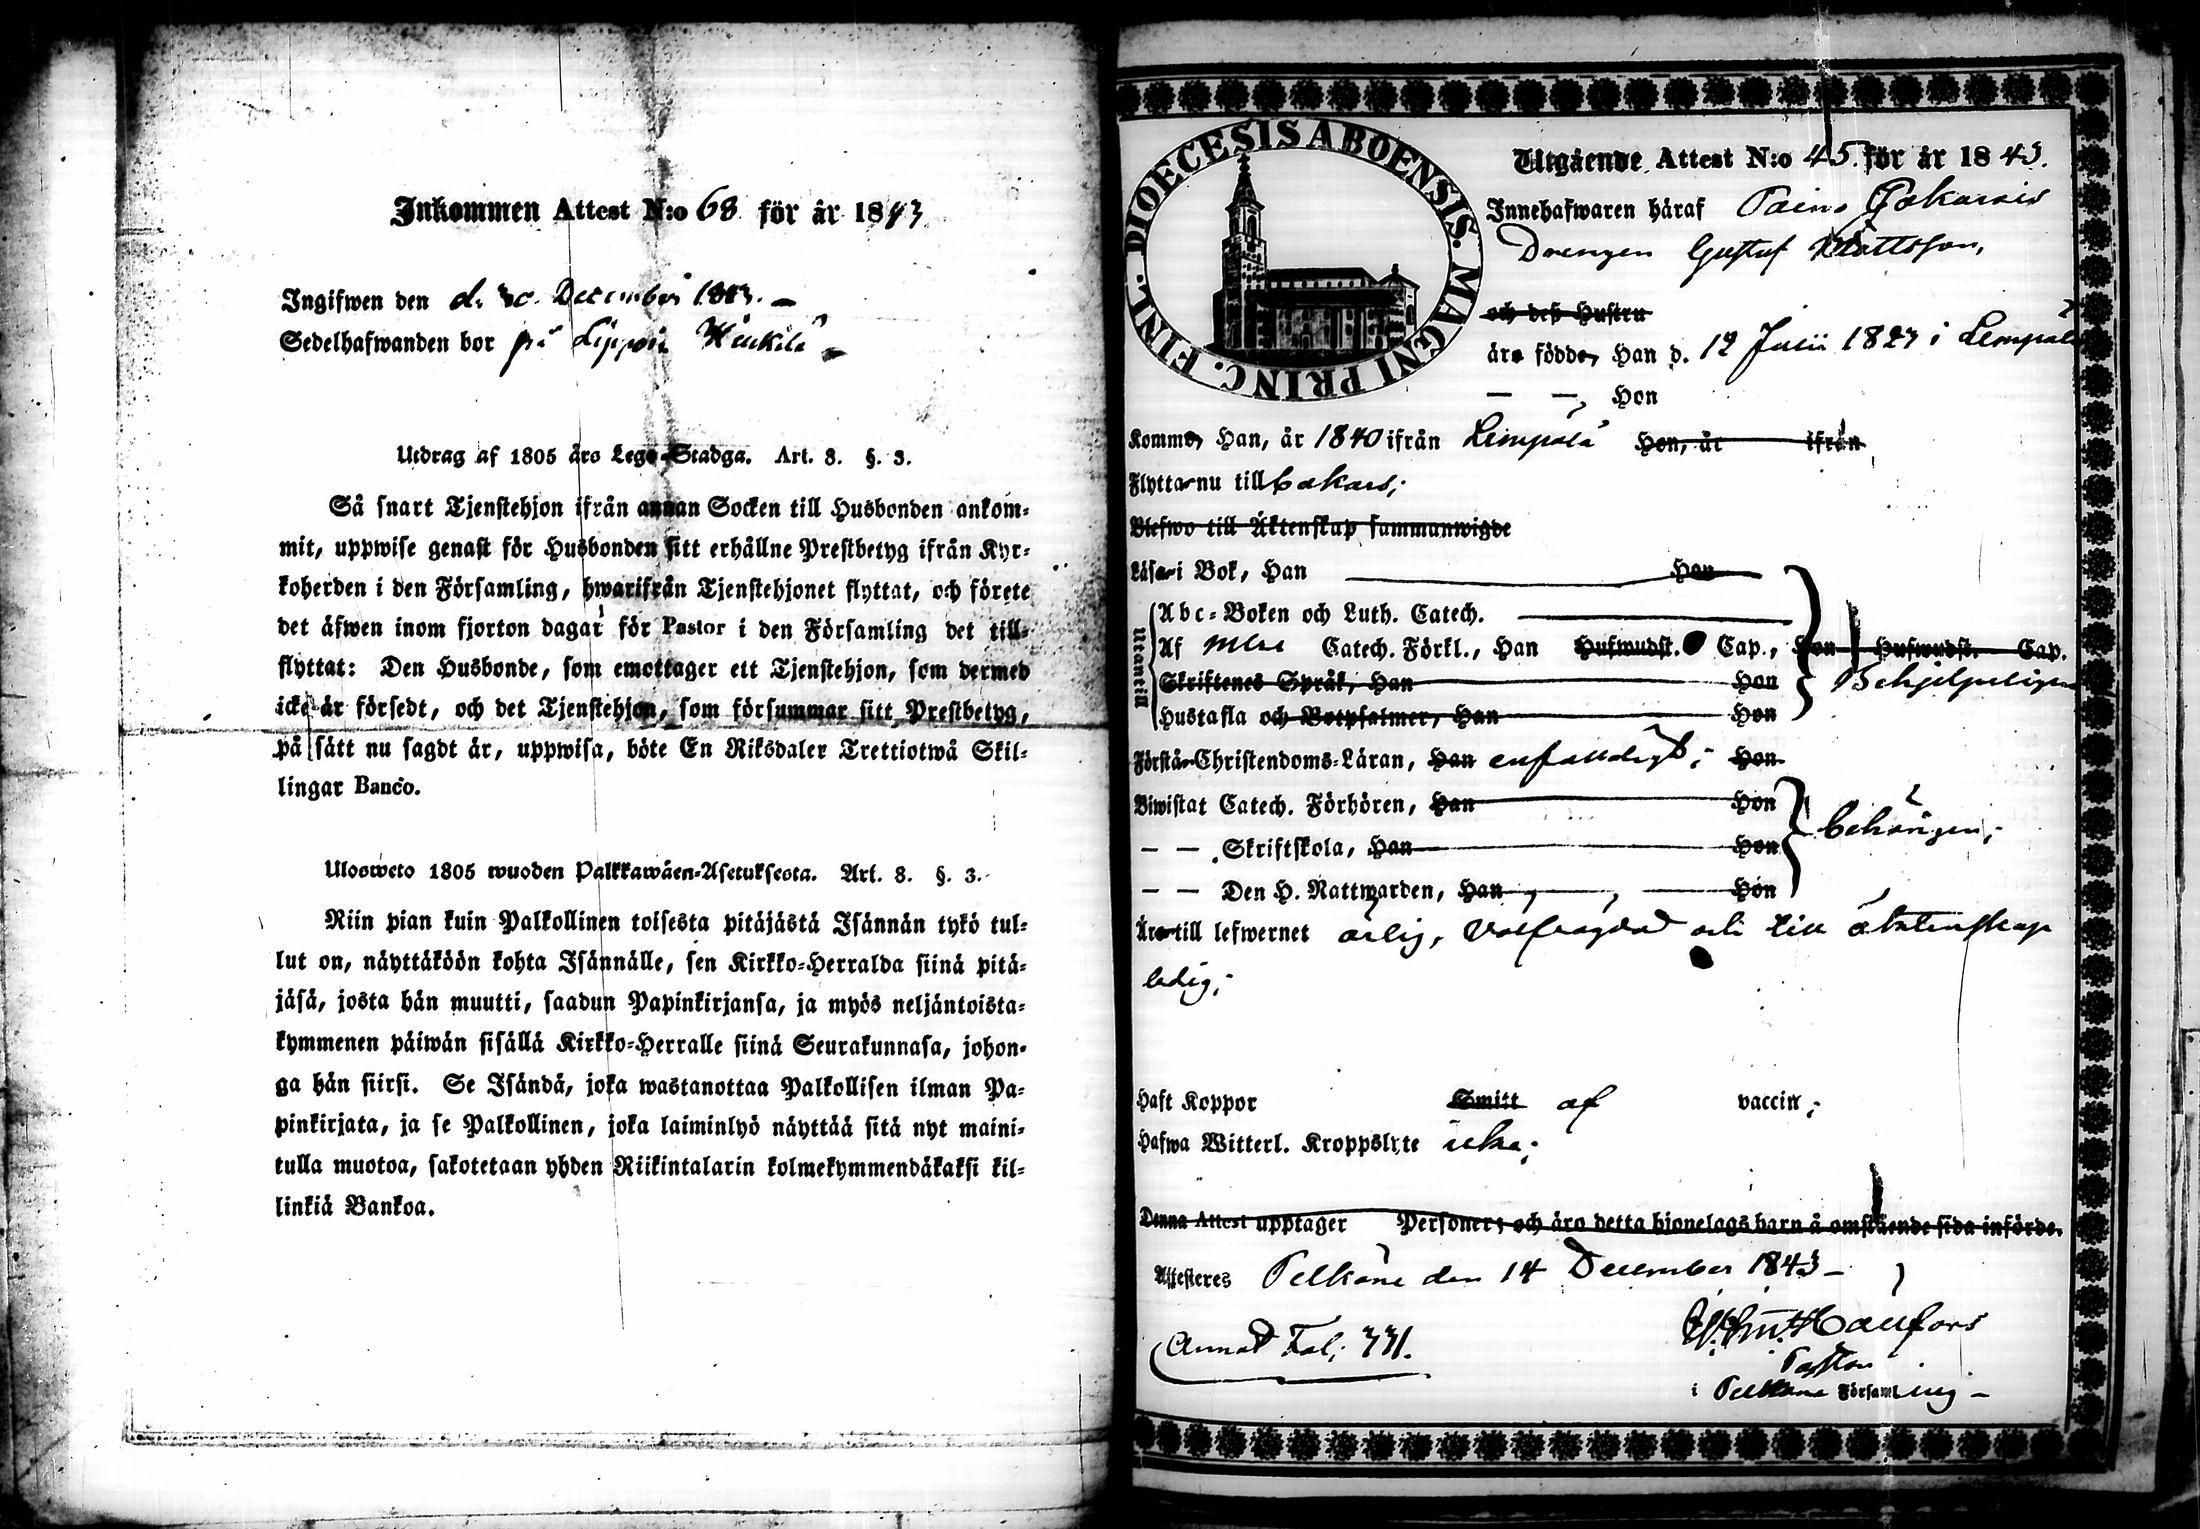 Inkommen Attest N:o 68 för år 1843
Ingifwen den d. 30 December 1843. —
Sedelhafwanden bor på
Utdrag af 1805 års Lego-Stadga. Art. 8. §. 3.
Så snart Tjenstehjon ifrån annan Socken till Husbonden ankom-
mit, uppwise genast för Husbonden sitt erhållne Prestbetyg ifrån Kyr-
koherden i den Församling, hwarifrån Tjenstehjonet flyttat, och förete
det äfwen inom fjorton dagar för Pastor i den Församling det till-
flyttat: Den Husbonde, som emottager ett Tjenstehjon, som dermed
icke är försedt, och det Tjenstehjon, som försummar sitt Prestbetyg,
på sätt nu sagdt är, uppwisa, böte En Riksdaler Trettiotwå Skil-
lingar Banco.
Ulosweto 1805 wuoden Palkkawäen-Asetuksesta. Art. 8. §. 3.
Niin pian kuin Palkollinen toisesta pitäjästä Isännän tykö tul-
lut on, näyttäköön kohta Isännälle, sen Kirkko-Herralda siinä pitä-
jäsä, josta hän muutti, saadun Papinkirjansa, ja myös neljäntoista-
kymmenen päiwän sisällä Kirkko-Herralle siinä Seurakunnasa, johon-
ga hän siirsi. Se Isändä, joka wastanottaa Palkollisen ilman Pa-
pinkirjata, ja se Palkollinen, joka laiminlyö näyttää sitä nyt maini-
tulla muotoa, sakotetaan yhden Riikintalarin kolmekymmendäkaksi kil-
linkiä Bankoa.
DIOECESIS ABOENSIS. MAGNI PRINC. FINL.
Utgående Attest N:o 45. för år 1843.
Innehafwaren häraf
Drengen Gustaf Mattsson,
och deß Hustru
äro födde, Han d. 12 Julii 1823 i Lempälä
— — Hon
Komme, Han, år 1840 ifrån Lempälä Hon, år ifrån
Flytta nu till
Blefwo till Äktenskap sammanwigde
Läsa i Bok, Han Hon
Utantill
Abc-Boken och Luth. Catech.
Af Catech. Förkl., Han Hufwudst. Cap., Hon Hufwudst. Cap.
Skriftenes Språk, Han Hon Behjelpeligen
Hustafla och Botpsalmer, Han Hon
Förstå Christendoms-Läran, Han enfaldigt; Hon
Biwistat Catech. Förhören, Han Hon
— — Skriftskola, Han Hon behörigen;
— — Den H. Nattwarden, Han Hon
Äro till lefwernet ärlig, välfrägdad och till äktenskap
ledig;
Haft Koppor Smitt af vaccin;
Hafwa Witterl. Kroppslyte icke;
Denna Attest upptager Personer; och äro detta hjonelags barn å omstående sida införde.
Attesteres Pelkäne den 14 December 1843 —
Fol; 331.
Pastor
i Pelkäne Församling —